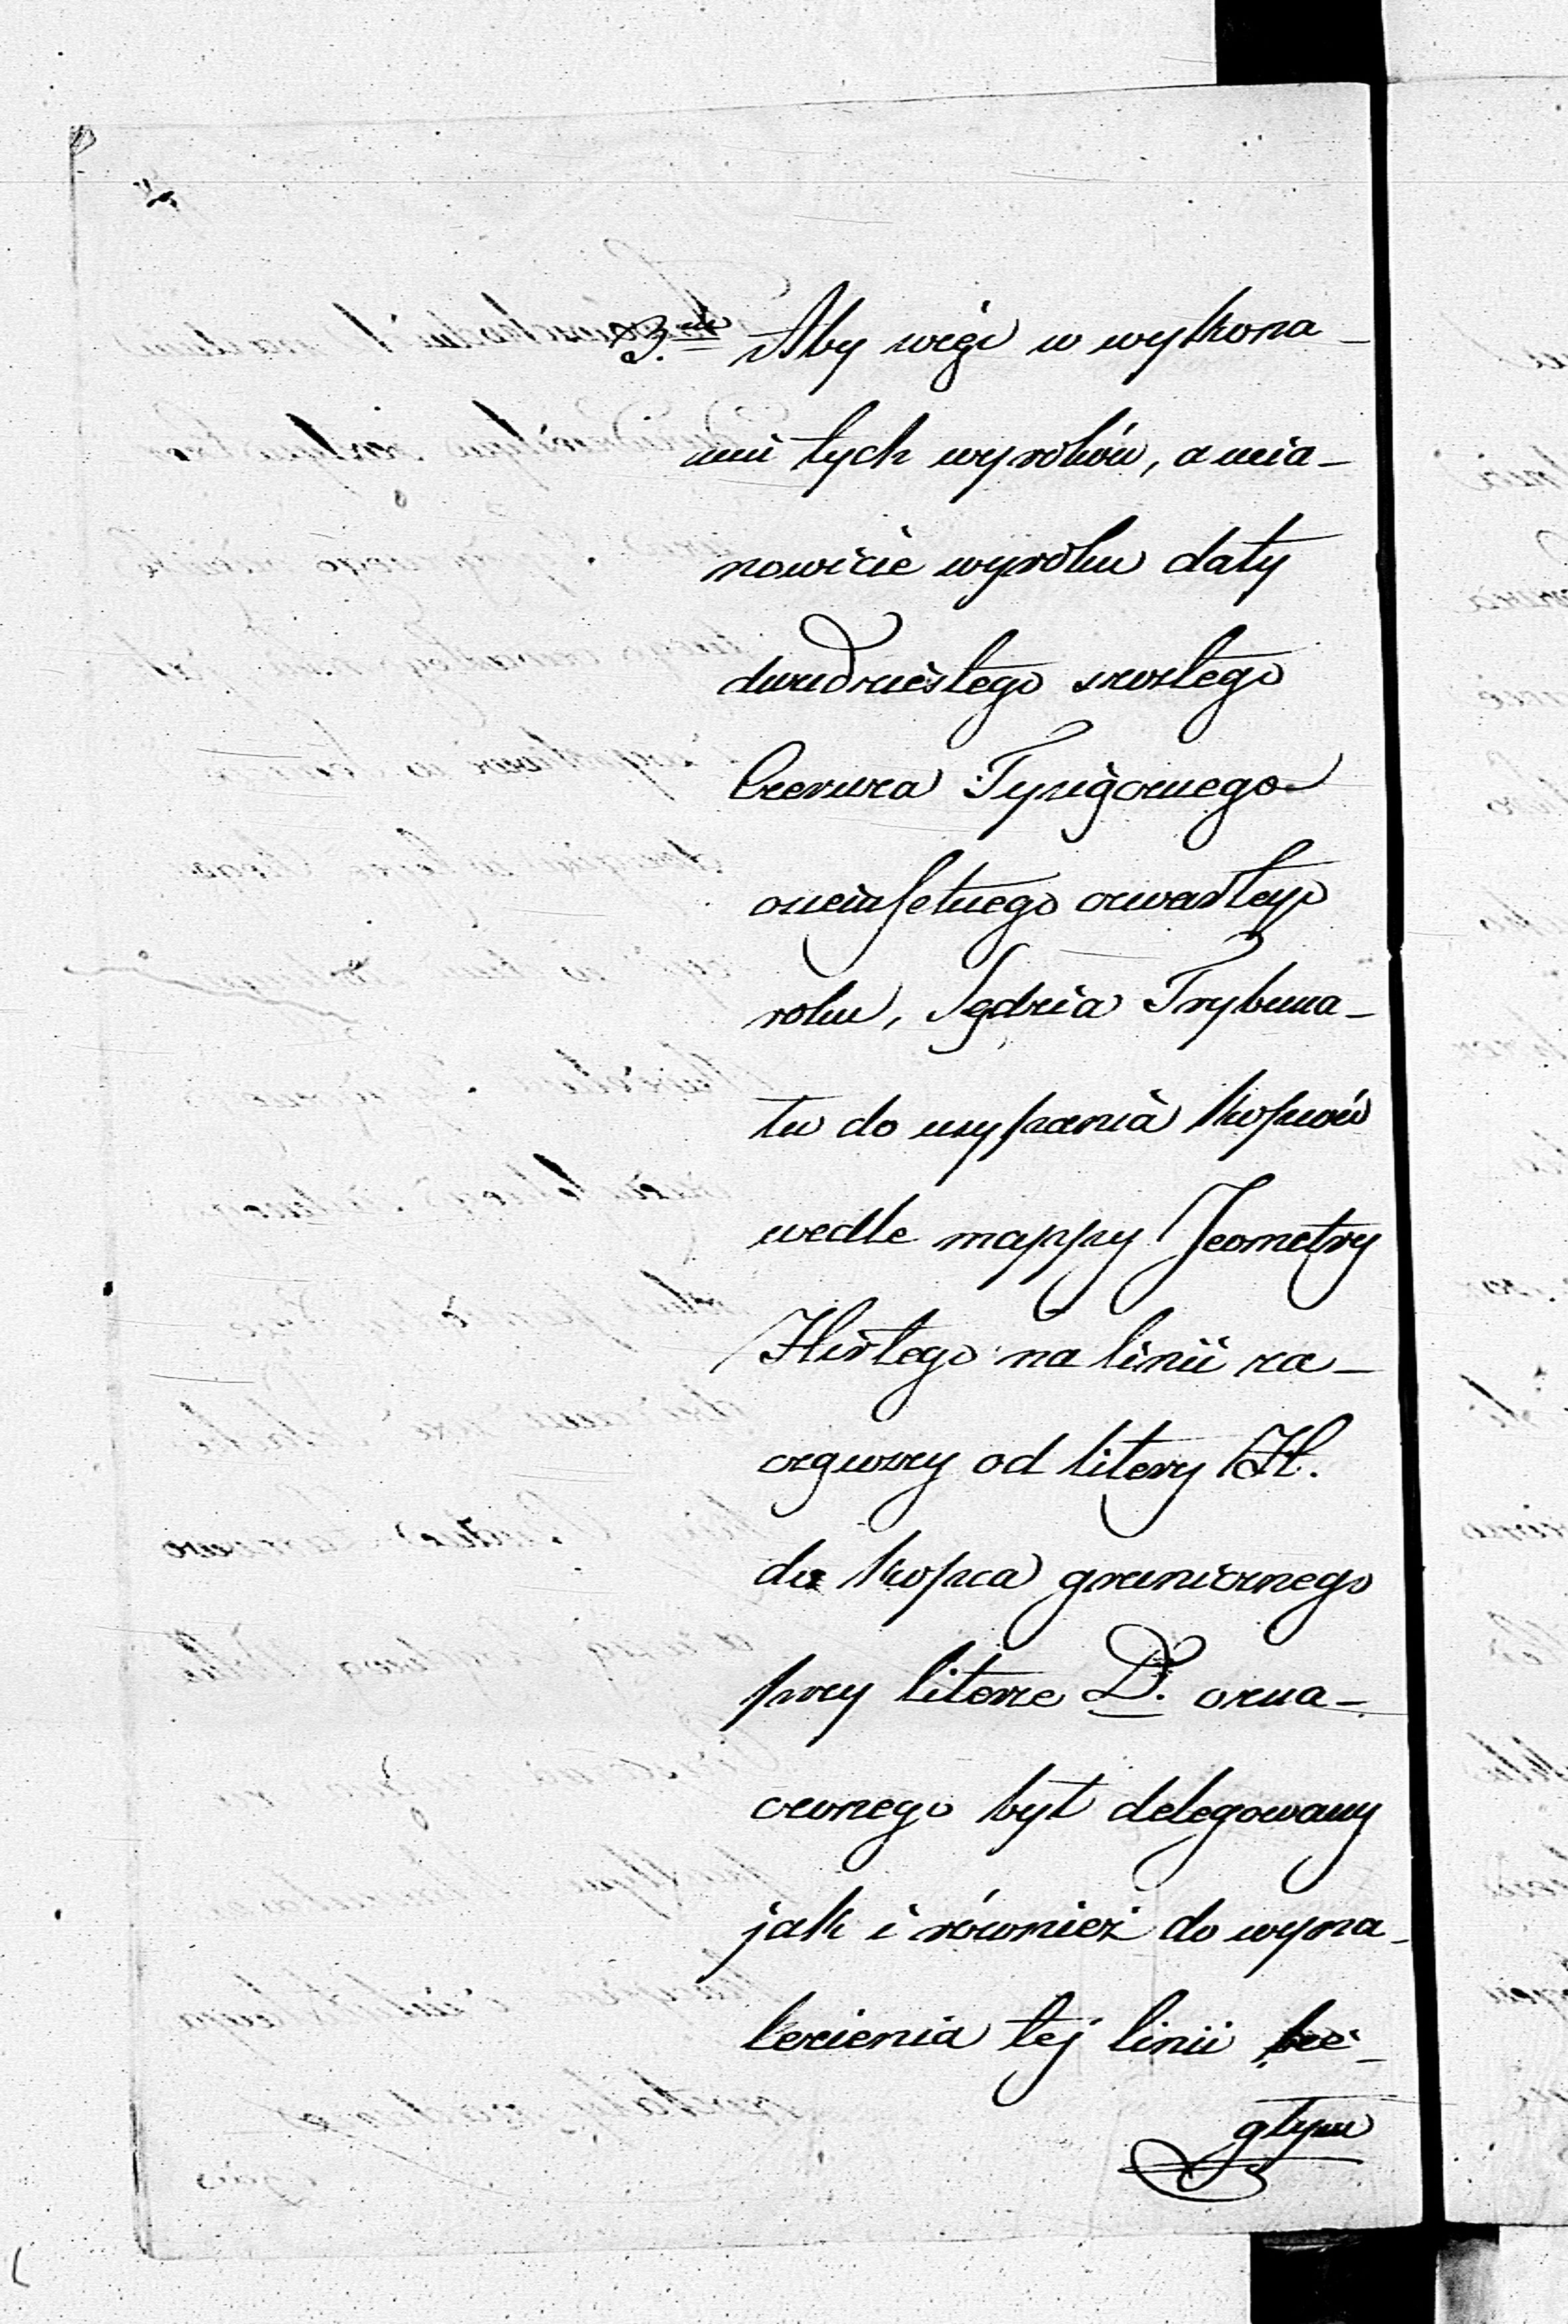 3.cie Aby więc w wykona-
niu tych wyroków, a mia-
nowicie wyroku daty
dwudziestego szóstego
Czerwca Tysiącznego
ośmsetnego czwartego
roku, Sędzia Trybuna-
tu do usypania kopców
wedle mappy Jeometry
Hirtego na linii za-
cząwszy od litery H.
do kopca granicznego
przy literze D. ozna-
czonego był delegowany
jak i również do wyna-
lezienia tej linii bie-
głym